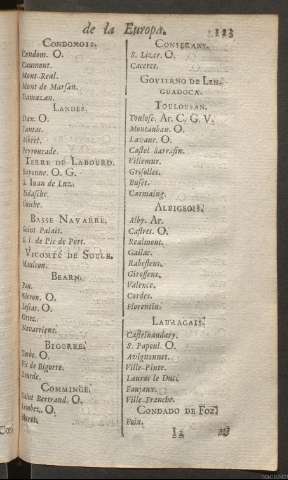 de la Europa. 123
CONDOMOIS.
Condom. O.
Caumont.
Mont-Real.
Mont de Marsan.
Damazan.
LANDES.
Dax. O.
Tartas.
Albret.
Peyrourade.
TERRE DU LABOURD.
Bayonne. O. G.
S. Iuan de Luz.
Bidasche.
Guiche.
BASSE NAVARRE.
Saint Palait.
S. I. de Pie de Port.
VICONTÉ DE SOULE.
Mauleon.
BEARN.
Pau.
Oleron. O.
Lescar. O.
Ortez.
Navarrienx.
BIGORRE.
Tarbe. O.
Vic de Bigorre.
Lourde.
COMMINGE.
Saint Bertrand. O.
Lombez. O.
Muret.
CONSERANS.
S. Lizer. O.
Caceres.
GOVIERNO DE LEN-
GUADOCA.
TOULOUSAN.
Toulose. Ar. C. G. V.
Montauban. O.
Lavaur. O.
Castel Sarrasin.
Villemur.
Grisolles.
Buset.
Carmaing.
ALBIGEOIS.
Alby. Ar.
Castres. O.
Realmont.
Gaillac.
Rabestens.
Giroussens.
Valence.
Cordes.
Florentin.
LAURAGAIS.
Castelnaudary.
S. Papoul. O.
Avignonnet.
Ville-Pinte.
Laurac le Duci.
Fanjaux.
Ville-Franche.
CONDADO DE FOZ.
Foix.
I 2